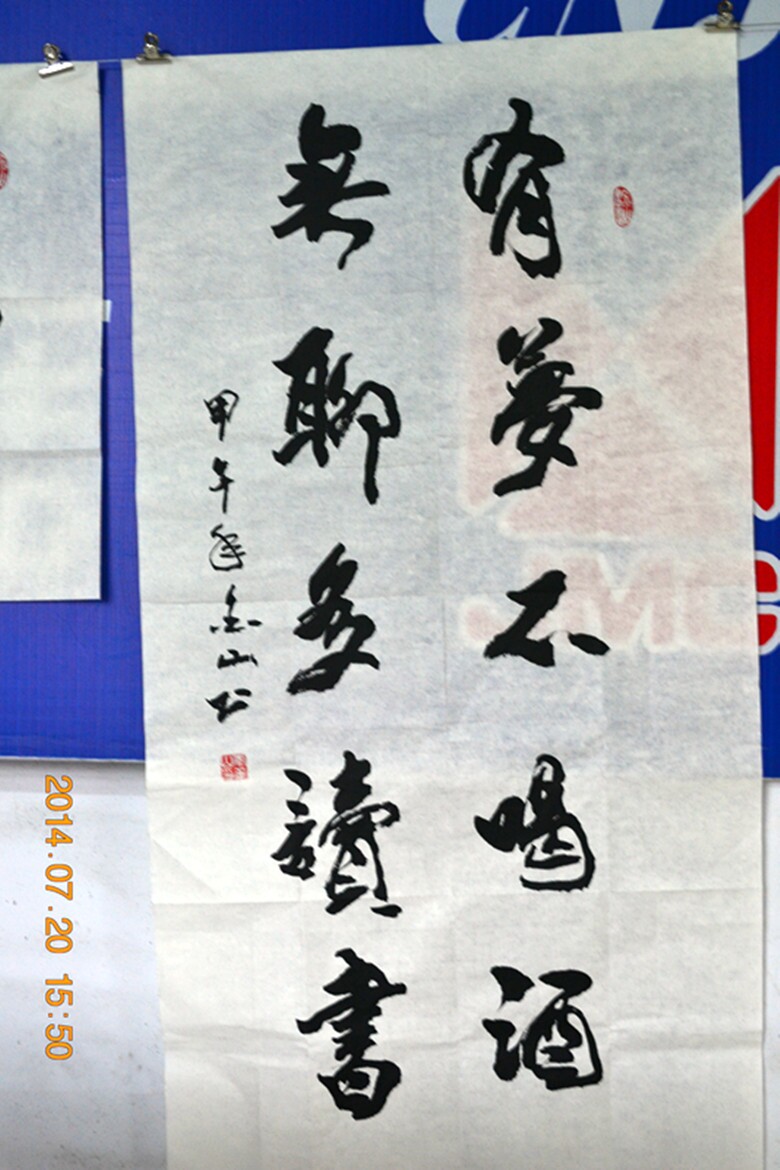 有夢不喝酒
無聊多讀書
甲午年
山
2014.07.20 15:50